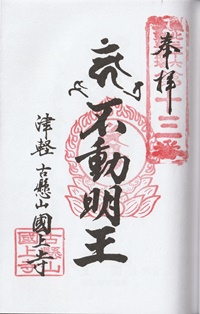 奉拝
不動明王
津軽 古懸山 國上寺
十三番
古懸山
國上寺